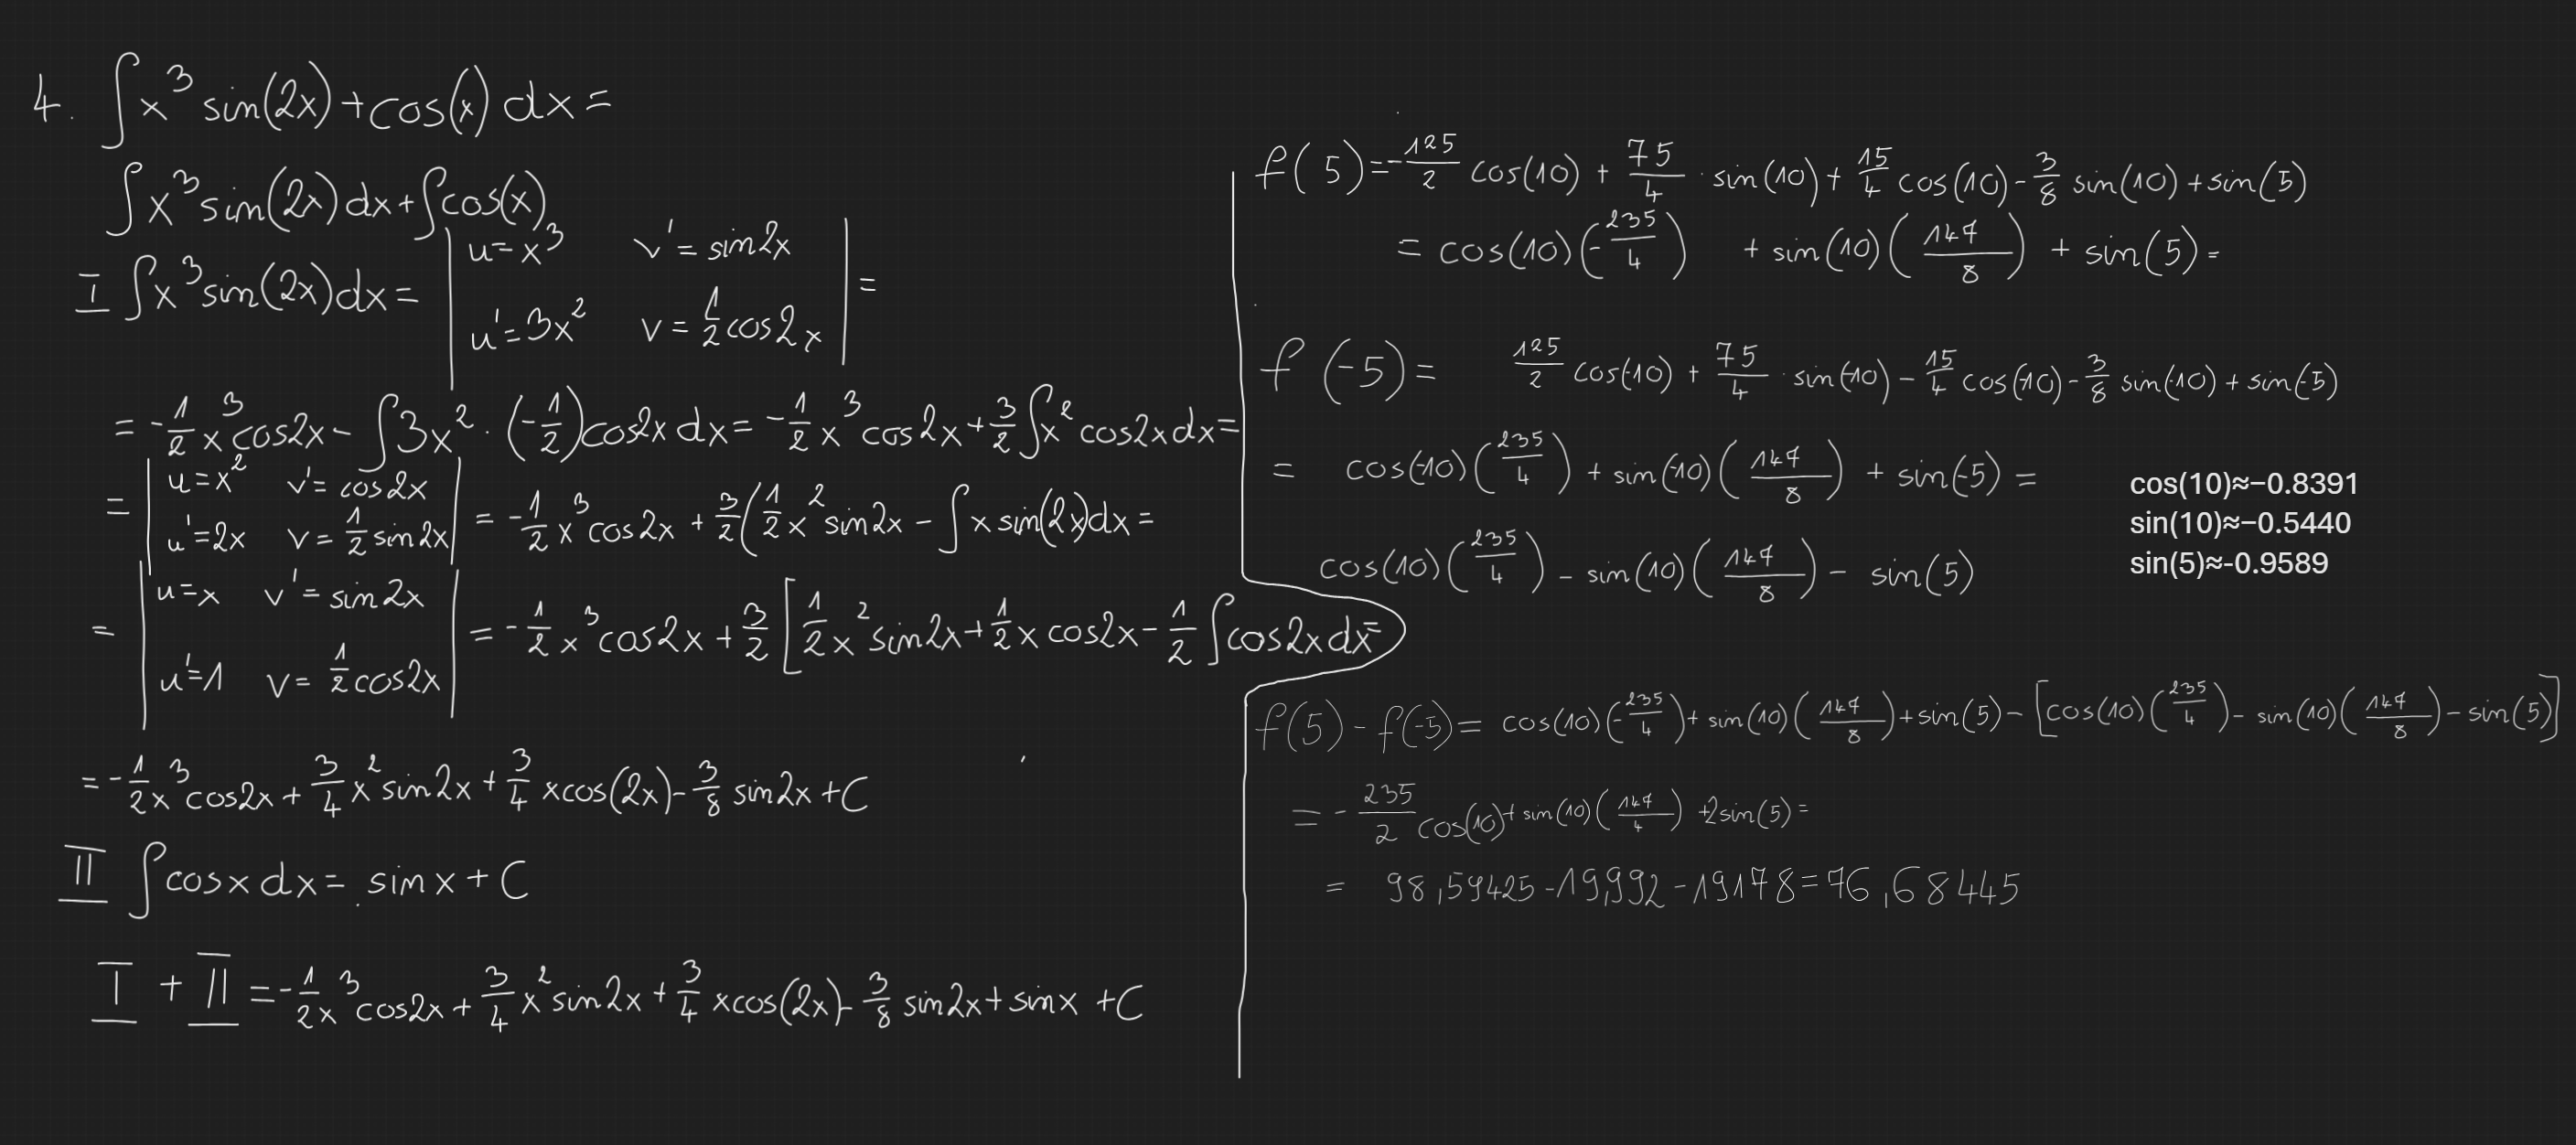 4. ∫ x³ sin(2x) + cos(x) dx =
∫ x³ sin(2x) dx + ∫ cos(x)
I ∫ x³ sin(2x) dx = | u = x³ v' = sin2x | =
| u' = 3x² v = 1/2 cos2x |
= -1/2 x³ cos2x - ∫ 3x² · (-1/2) cos2x dx = -1/2 x³ cos2x + 3/2 ∫ x² cos2x dx =
= | u = x² v' = cos2x | = -1/2 x³ cos2x + 3/2 (1/2 x² sin2x - ∫ x sin(2x) dx =
| u' = 2x v = 1/2 sin2x |
= | u = x v' = sin2x | = -1/2 x³ cos2x + 3/2 [ 1/2 x² sin2x + 1/2 x cos2x - 1/2 ∫ cos2x dx =
| u' = 1 v = 1/2 cos2x |
= -1/2 x³ cos2x + 3/4 x² sin2x + 3/4 x cos(2x) - 3/8 sin2x + C
II ∫ cosx dx = sinx + C
I + II = -1/2 x³ cos2x + 3/4 x² sin2x + 3/4 x cos(2x) - 3/8 sin2x + sinx + C
f(5) = -125/2 cos(10) + 75/4 · sin(10) + 15/4 cos(10) - 3/8 sin(10) + sin(5)
= cos(10) (-235/4) + sin(10) (147/8) + sin(5) =
f(-5) = 125/2 cos(-10) + 75/4 · sin(-10) - 15/4 cos(-10) - 3/8 sin(-10) + sin(-5)
= cos(-10) (235/4) + sin(-10) (147/8) + sin(-5) =
cos(10) (235/4) - sin(10) (147/8) - sin(5)
cos(10)≈−0.8391
sin(10)≈−0.5440
sin(5)≈-0.9589
f(5) - f(-5) = cos(10) (-235/4) + sin(10) (147/8) + sin(5) - [cos(10) (235/4) - sin(10) (147/8) - sin(5)]
= -235/2 cos(10) + sin(10) (147/4) + 2sin(5) =
= 98,59425 - 19,992 - 1,9178 = 76,68445